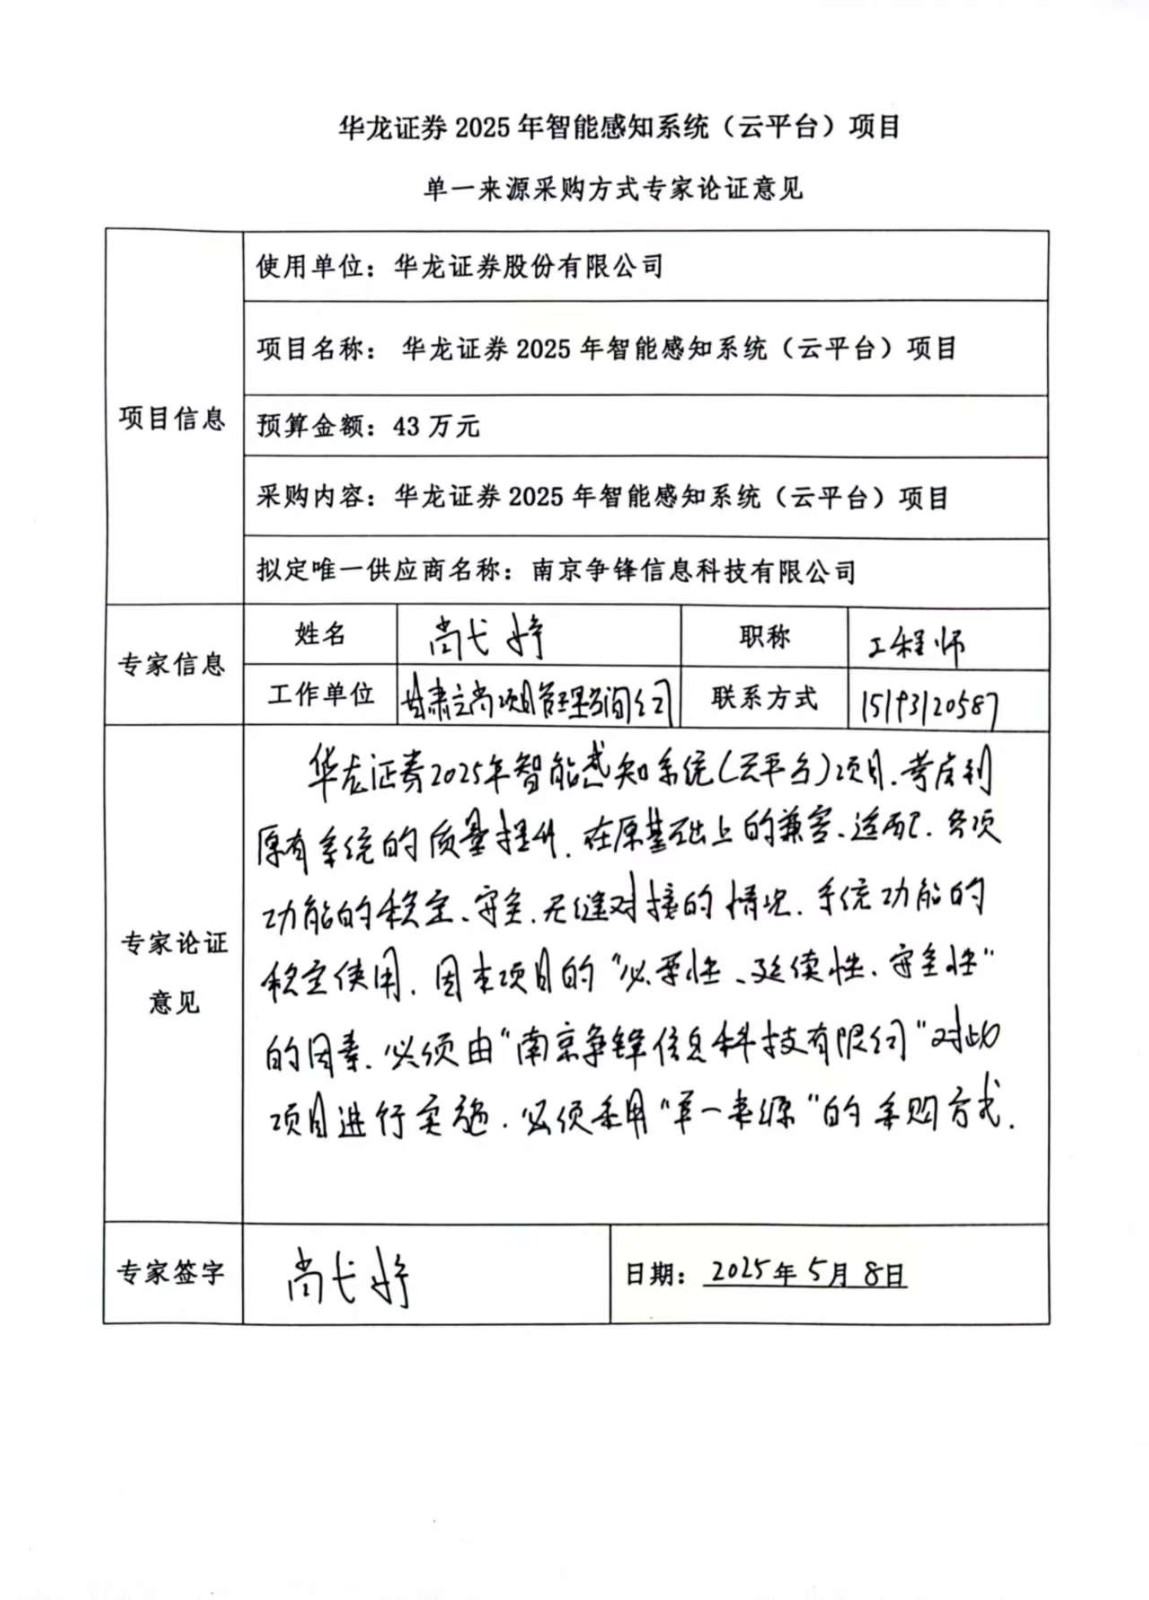 华龙证券 2025 年智能感知系统（云平台）项目
单一来源采购方式专家论证意见
项目信息
使用单位：华龙证券股份有限公司
项目名称： 华龙证券 2025 年智能感知系统（云平台）项目
预算金额：43 万元
采购内容：华龙证券 2025 年智能感知系统（云平台）项目
拟定唯一供应商名称：南京争锋信息科技有限公司
专家信息
姓名 尚弋婷 职称 工程师
工作单位 甘肃立尚项目管理咨询公司 联系方式 15193120587
专家论证
意见
华龙证券2025年智能感知系统(云平台)项目、考虑到
原有系统的质量提升、在原基础上的兼容、适配、各项
功能的稳定、安全、无缝对接的情况、系统功能的
稳定使用、因本项目的“必要性、延续性、安全性”
的因素、必须由“南京争锋信息科技有限公司”对此
项目进行实施、必须采用“单一来源”的采购方式.
专家签字 尚弋婷 日期：2025年5月8日